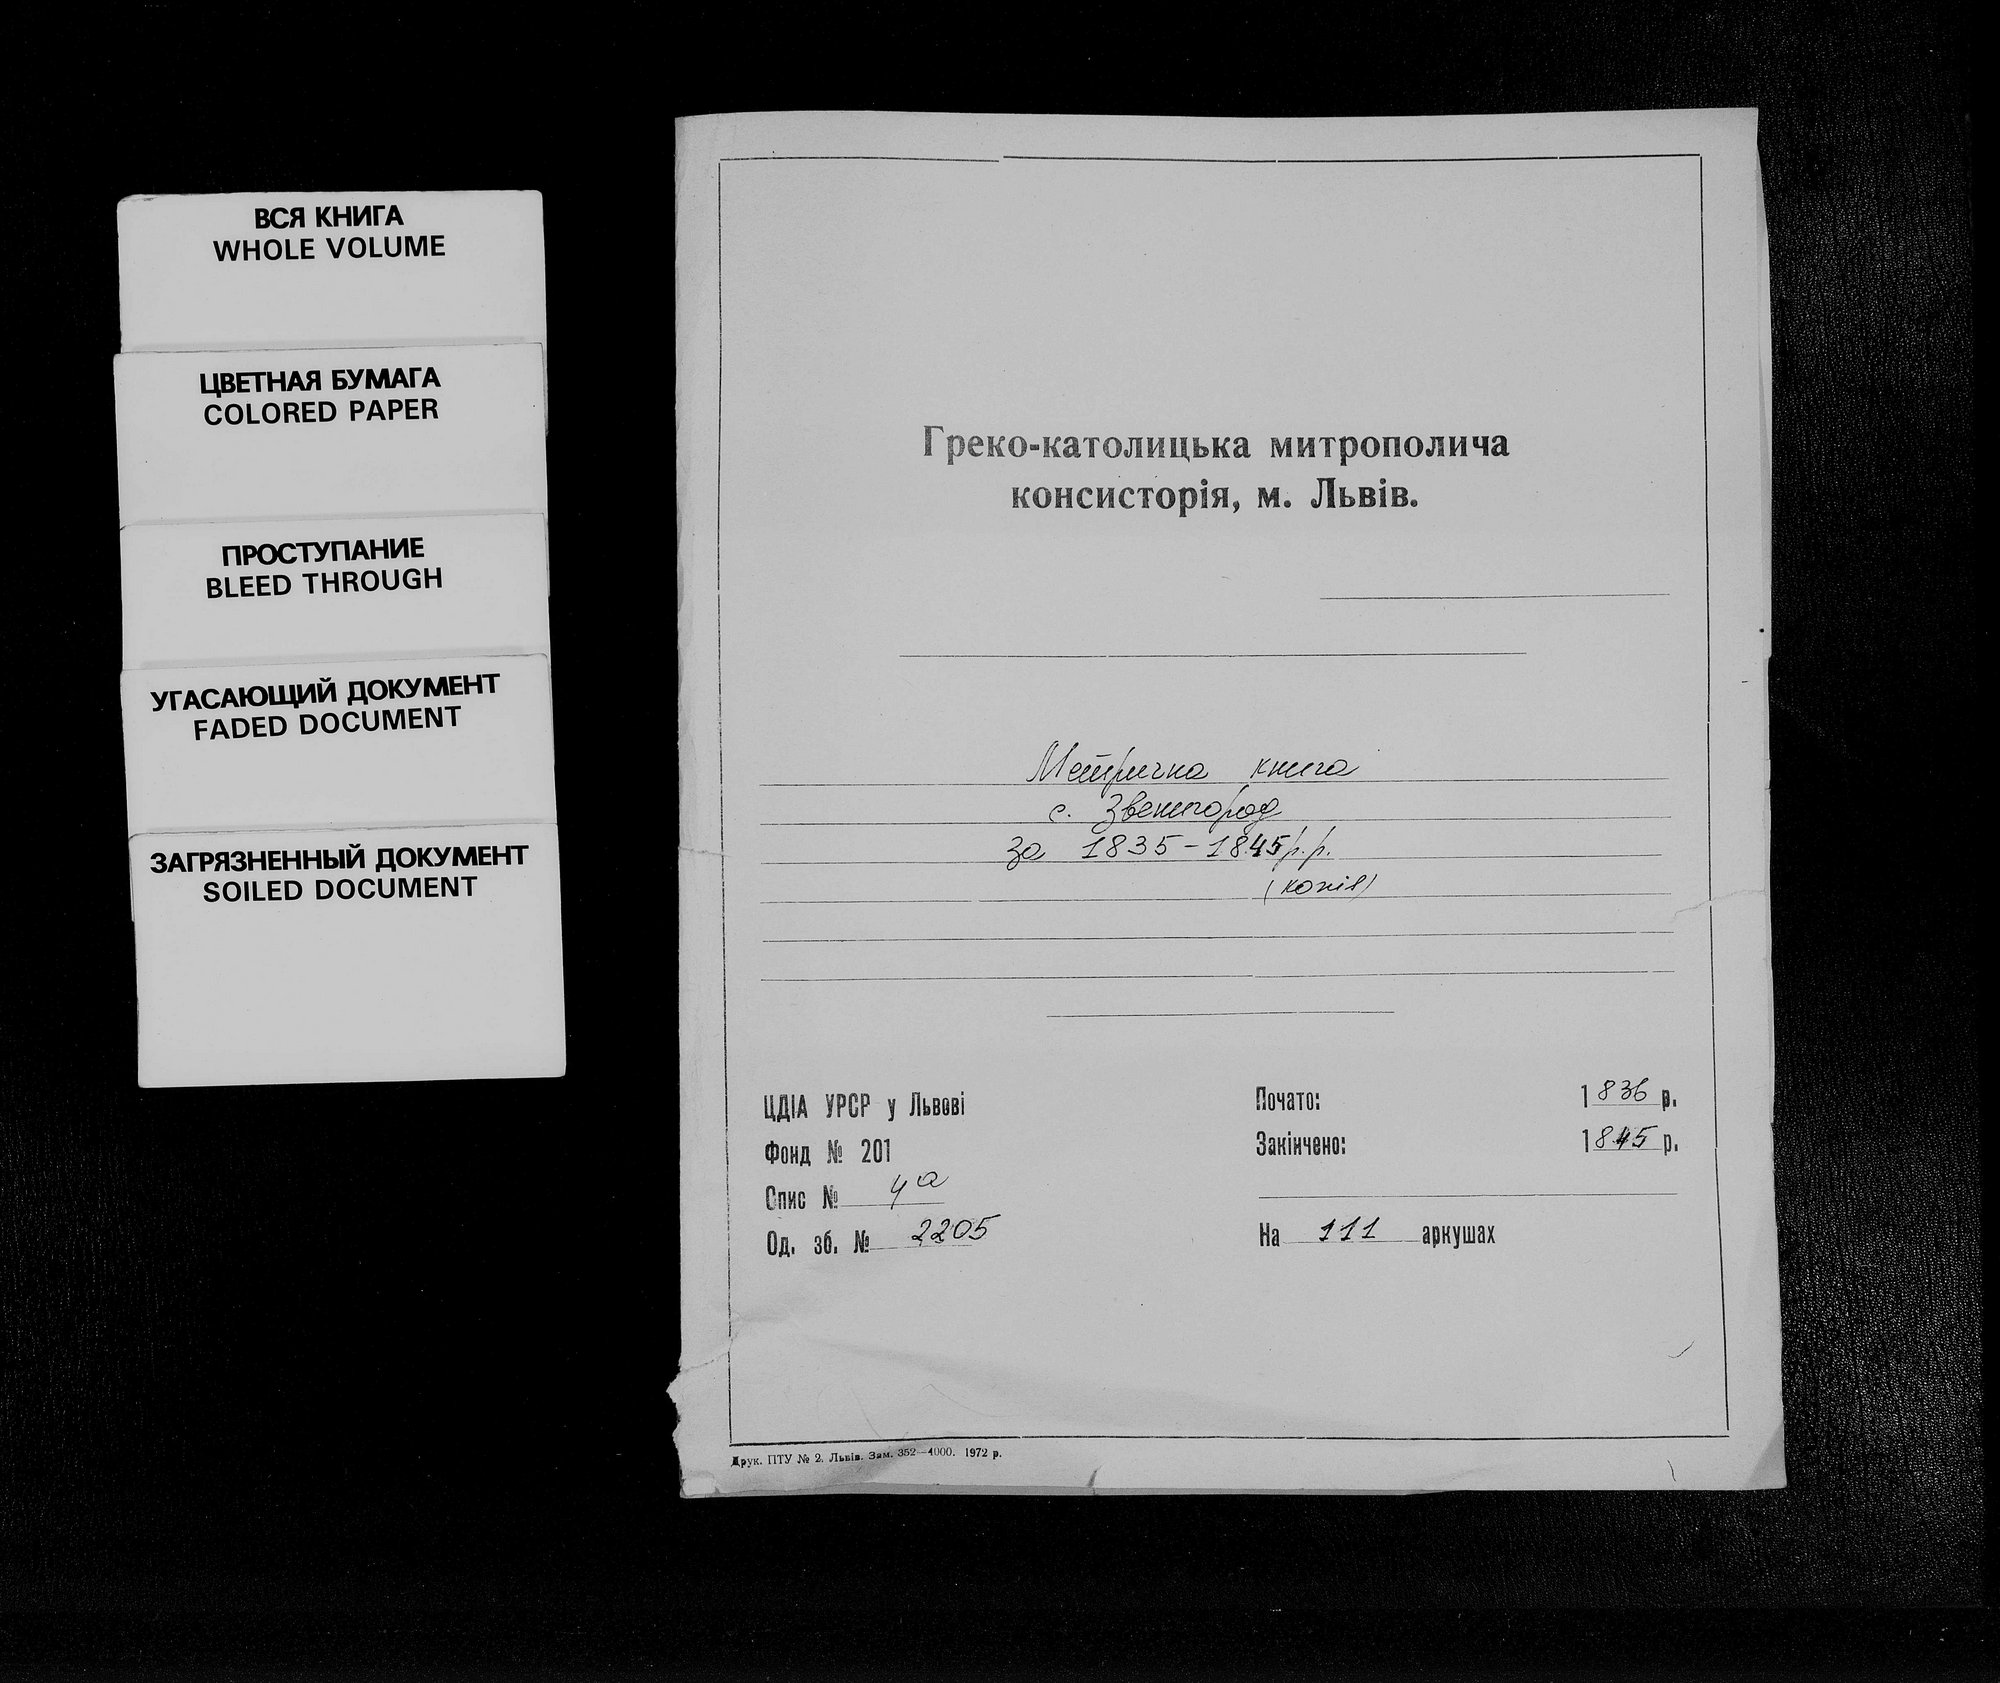 ВСЯ КНИГА
WHOLE VOLUME
ЦВЕТНАЯ БУМАГА
COLORED PAPER
ПРОСТУПАНИЕ
BLEED THROUGH
УГАСАЮЩИЙ ДОКУМЕНТ
FADED DOCUMENT
ЗАГРЯЗНЕННЫЙ ДОКУМЕНТ
SOILED DOCUMENT
Греко-католицька митрополича
консисторія, м. Львів.
Метрична книга
с. Звенигород
за 1835-1845 р.р.
(копія)
ЦДІА УРСР у Львові
Фонд № 201
Опис № 4а
Од. зб. № 2205
Почато: 1836 р.
Закінчено: 1845 р.
На 111 аркушах
Друк. ПТУ № 2. Львів. Зам. 352—4000. 1972 р.